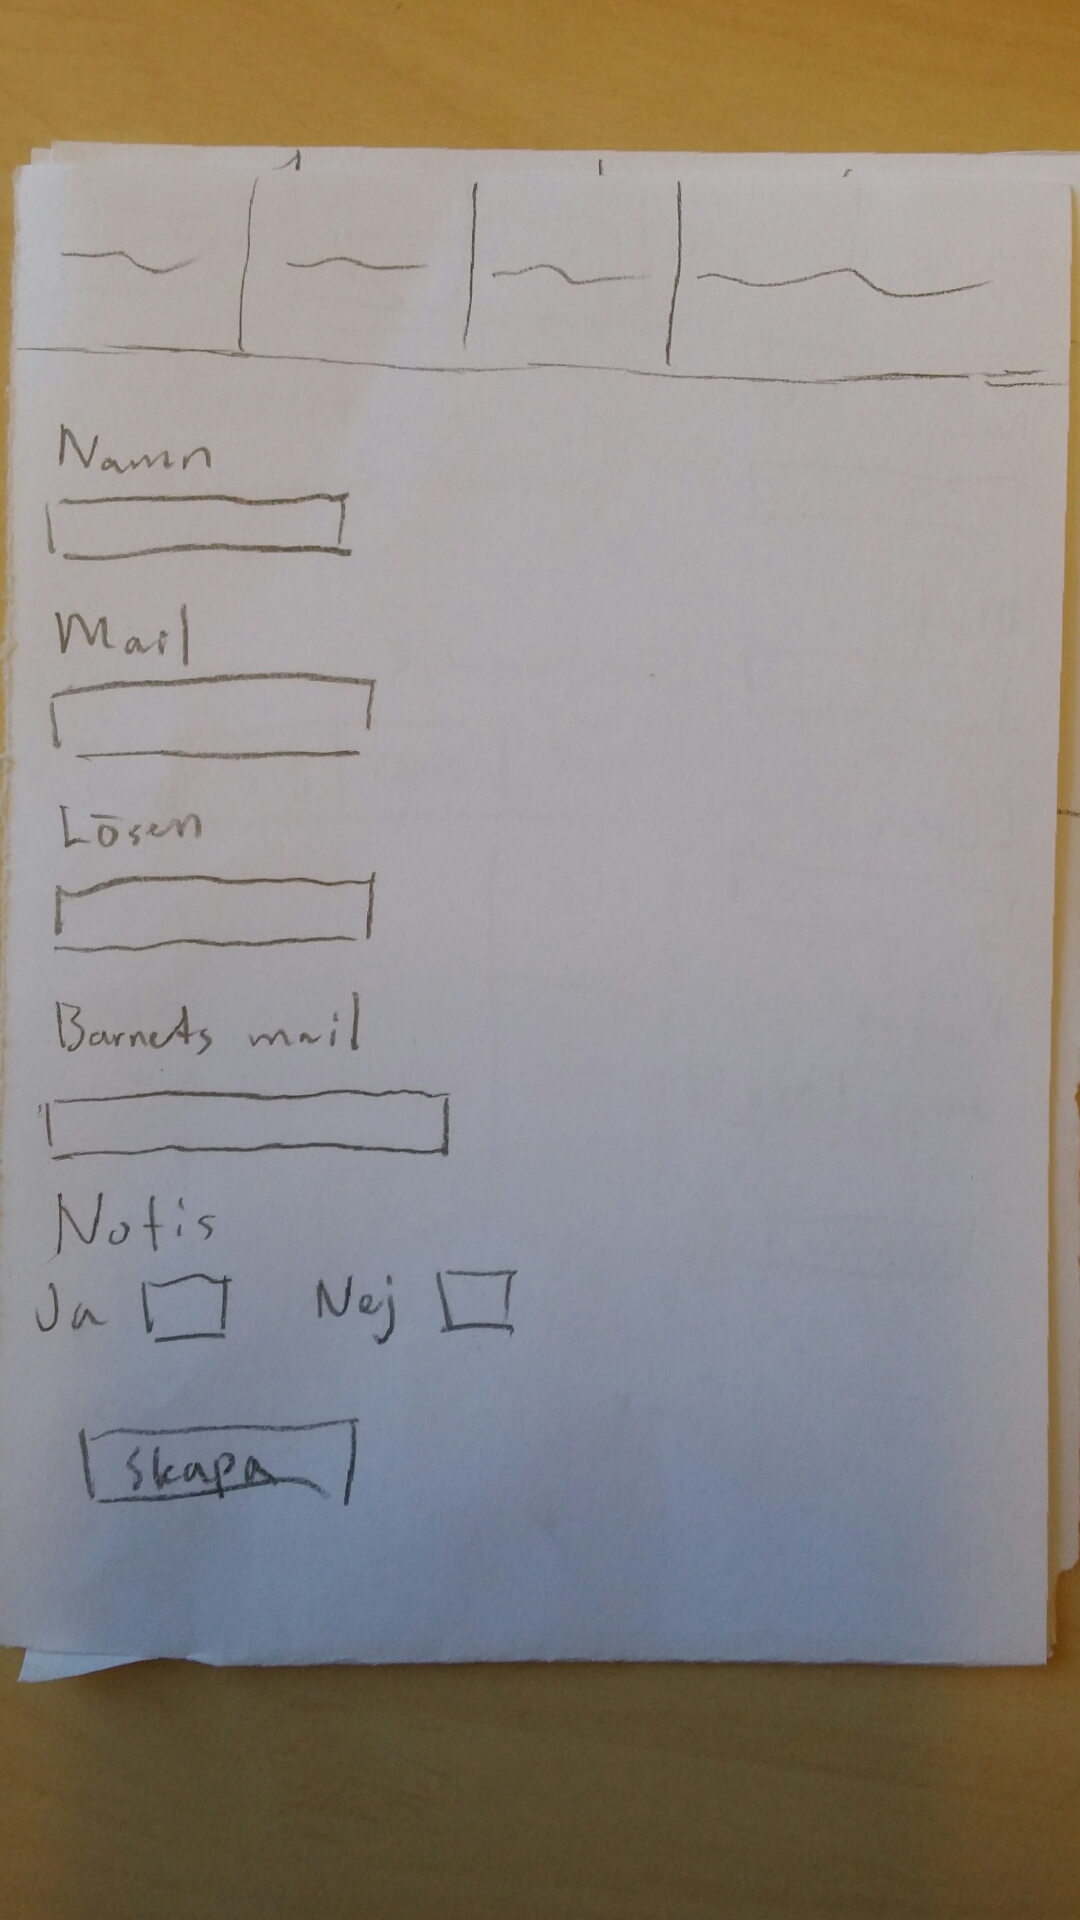 Namn
Mail
Lösen
Barnets mail
Notis
Ja Nej
Skapa